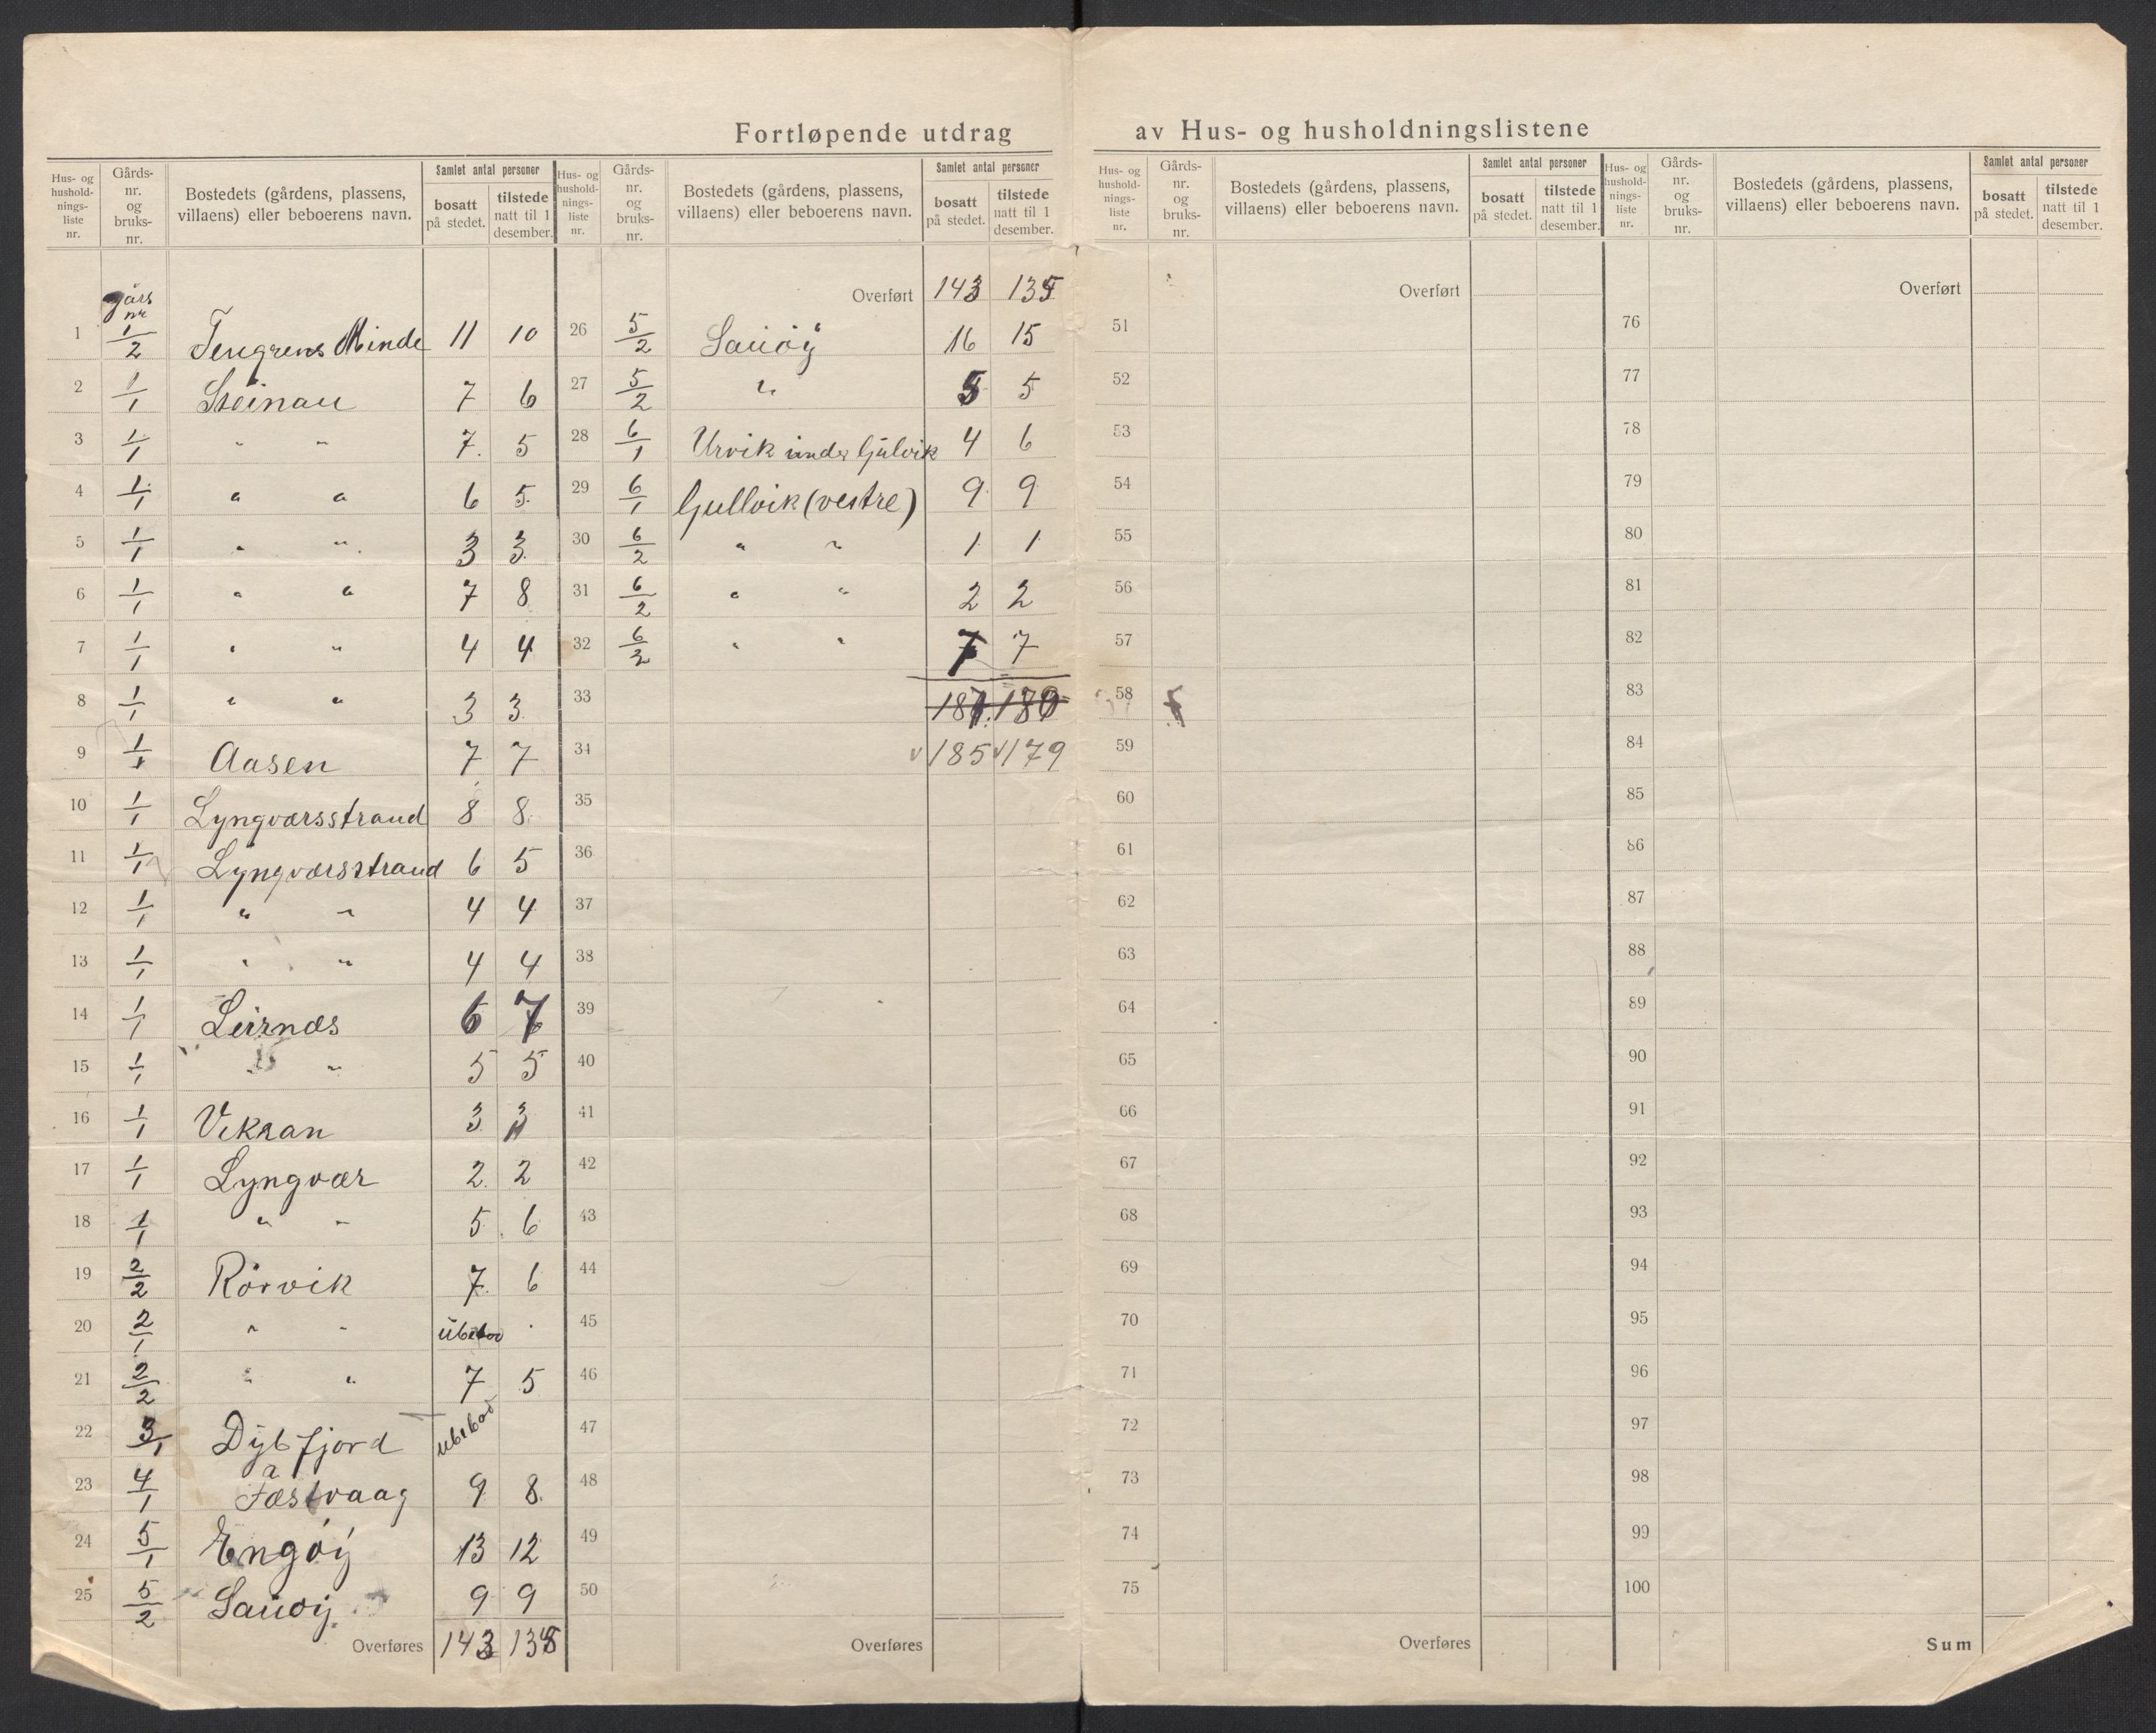 Fortløpende utdrag av Hus- og husholdningslistene
Hus- og hushold-nings-liste nr. | Gårds-nr. og bruks-nr. | Bostedets (gårdens, plassens, villaens) eller beboerens navn. | Samlet antal personer | bosatt på stedet. | tilstede natt til 1 desember.
gårs nr
1 1/2 Tengrens Minde 11 10
2 1/1 Steinau 7 6
3 1/1 " " 7. 5
4 1/1 " " 6 5
5 1/1 " " 3 3
6 1/1 " " 7 8
7 1/1 " " 4 4
8 1/1 " " 3 3
9 1/1 Aasen 7 7
10 1/1 Lyngværsstrand 8 8
11 1/1 Lyngværsstrand 6 5
12 1/1 " " 4 4
13 1/1 " " 4 4
14 1/1 Leirnæs 6 7
15 1/1 " " 5 5
16 1/1 Vikran 3 3
17 1/1 Lyngvær 2 2
18 1/1 " " 5 6
19 2/2 Rörvik 7 6
20 2/1 " " ubebod
21 2/2 " " 7 5
22 3/1 Dybfjord ubebod
23 4/1 Fæstvaag 9 8
a
24 5/1 Engöy 13 12
25 5/2 Sauöy 9 9
Overføres 143
Hus- og hushold-nings-liste nr. | Gårds-nr. og bruks-nr. | Bostedets (gårdens, plassens, villaens) eller beboerens navn. | Samlet antal personer | bosatt på stedet. | tilstede natt til 1 desember.
Overført 143
26 5/2 Sauöy 16 15
27 5/2 " 5 5
28 6/1 Urvik under Gulvik 4 6
29 6/1 Gullvik (vestre) 9 9
30 6/2 " " 1 1
31 6/2 " " 2 2
32 6/2 " " 7 7
33
34 185 179
35
36
37
38
39
40
41
42
43
44
45
46
47
48
49
50
Overføres
Hus- og hushold-nings-liste nr. | Gårds-nr. og bruks-nr. | Bostedets (gårdens, plassens, villaens) eller beboerens navn. | Samlet antal personer | bosatt på stedet. | tilstede natt til 1 desember.
Overført
51
52
53
54
55
56
57
58
59
60
61
62
63
64
65
66
67
68
69
70
71
72
73
74
75
Overføres
Hus- og hushold-nings-liste nr. | Gårds-nr. og bruks-nr. | Bostedets (gårdens, plassens, villaens) eller beboerens navn. | Samlet antal personer | bosatt på stedet. | tilstede natt til 1 desember.
Overført
76
77
78
79
80
81
82
83
84
85
86
87
88
89
90
91
92
93
94
95
96
97
98
99
100
Sum